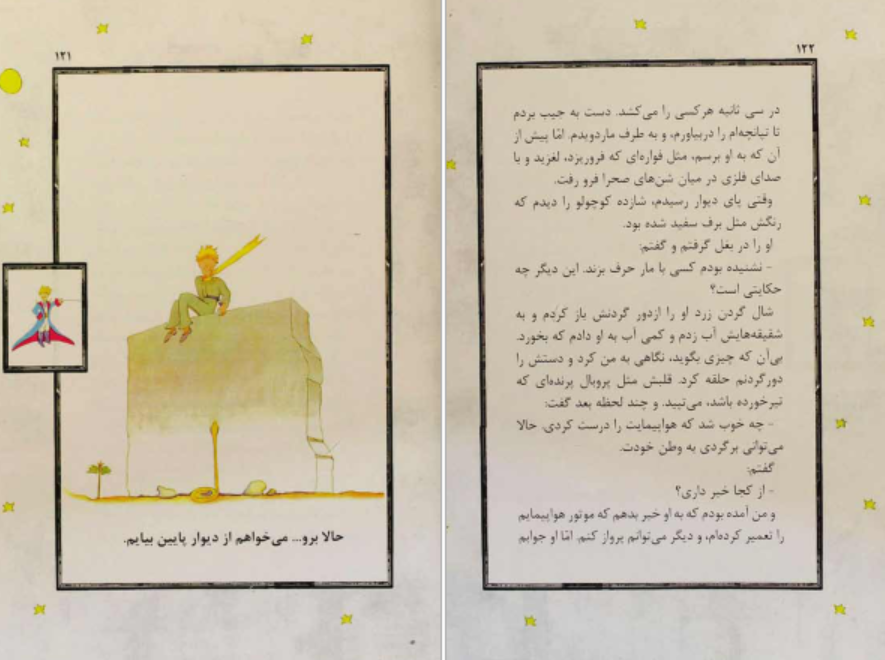 ۱۲۱
حالا برو... می‌خواهم از دیوار پایین بیایم.
۱۲۲
در سی ثانیه هرکسی را می‌کشد. دست به جیب بردم
تا تپانچه‌ام را دربیاورم، و به طرف ماردویدم. امّا پیش از
آن که به او برسم، مثل فواره‌ای که فروریزد، لغزید و با
صدای فلزی در میان شن‌های صحرا فرو رفت.
وقتی پای دیوار رسیدم، شازده کوچولو را دیدم که
رنگش مثل برف سفید شده بود.
او را در بغل گرفتم و گفتم:
- نشنیده بودم کسی با مار حرف بزند. این دیگر چه
حکایتی است؟
شال گردن زرد او را ازدور گردنش باز کردم و به
شقیقه‌هایش آب زدم و کمی آب به او دادم که بخورد.
بی‌آن که چیزی بگوید، نگاهی به من کرد و دستش را
دورگردنم حلقه کرد. قلبش مثل پروبال پرنده‌ای که
تیرخورده باشد، می‌تپید. و چند لحظه بعد گفت:
- چه خوب شد که هواپیمایت را درست کردی. حالا
می‌توانی برگردی به وطن خودت.
گفتم:
- از کجا خبر داری؟
و من آمده بودم که به او خبر بدهم که موتور هواپیمایم
را تعمیر کرده‌ام، و دیگر می‌توانم پرواز کنم. امّا او جوابم